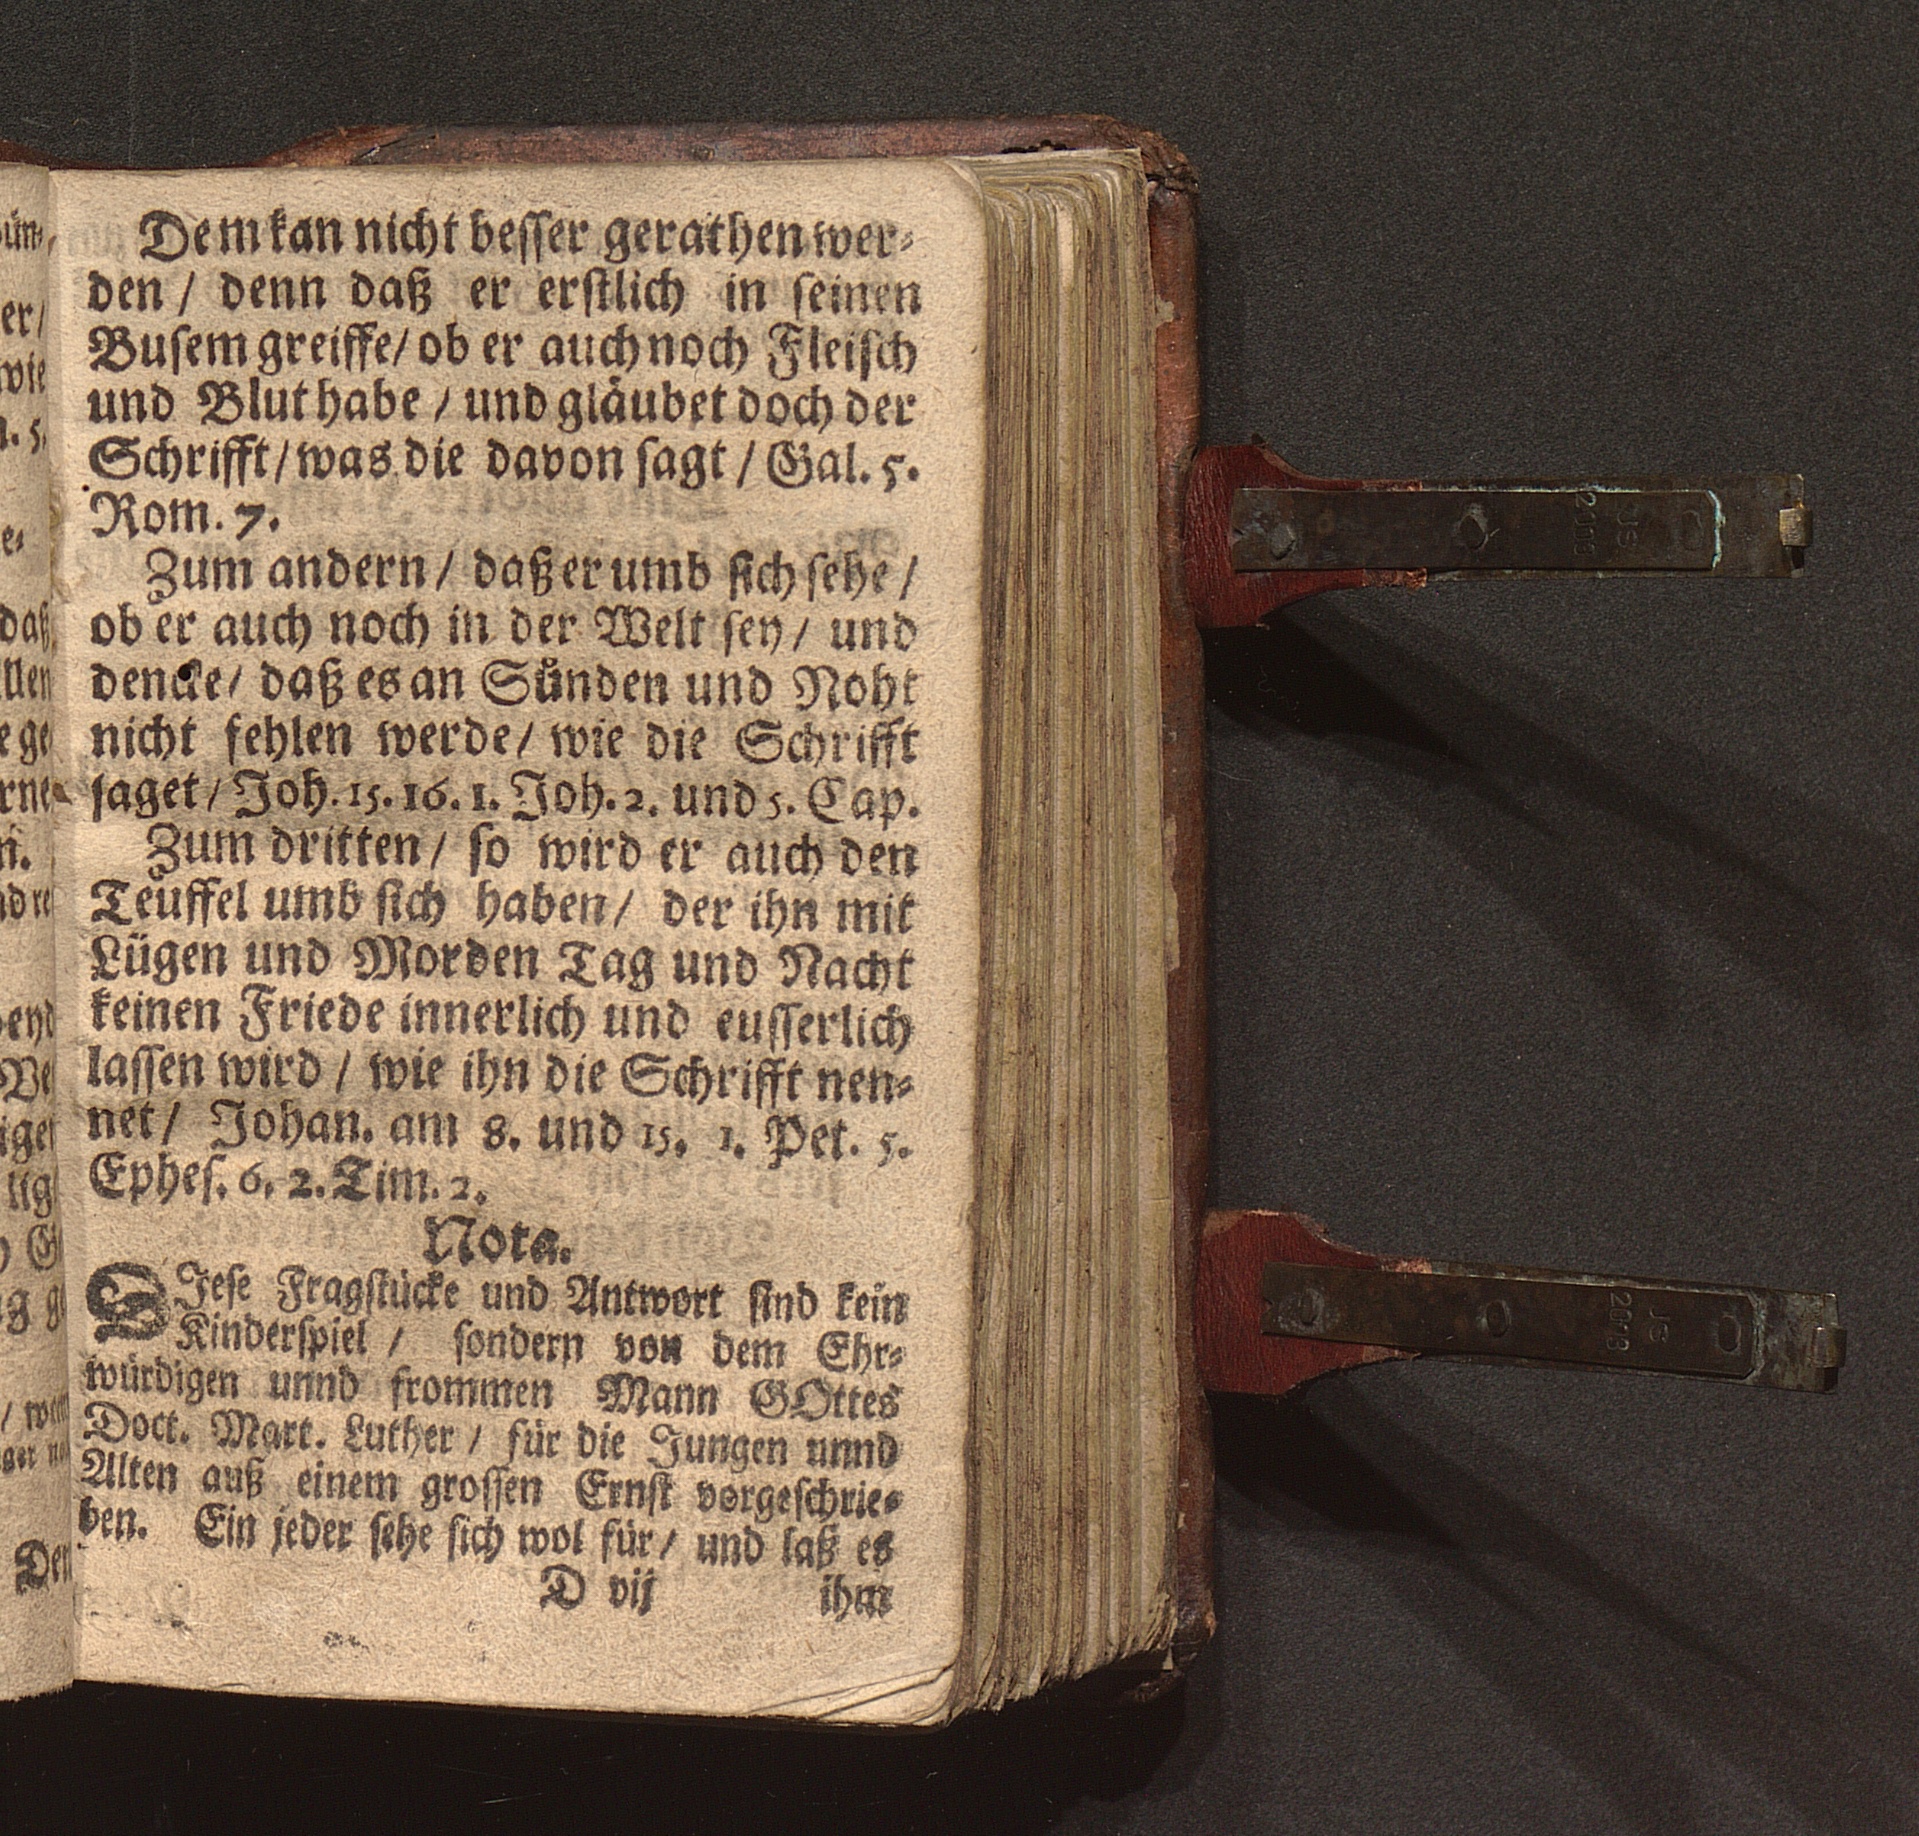 Dem kan nicht besser gerathen wer-
den / denn daß er erstlich in seinen
Busem greiffe / ob er auch noch Fleisch
und Blut habe / und gläubet doch der
Schrifft / was die davon sagt / Gal. 5.
Rom. 7.
Zum andern / daß er umb sich sehe /
ob er auch noch in der Welt sey / und
dencke / daß es an Sünden und Noht
nicht fehlen werde / wie die Schrifft
saget / Joh. 15. 16. 1. Joh. 2. und 5. Cap.
Zum dritten / so wird er auch den
Teuffel umb sich haben / der ihn mit
Lügen und Morden Tag und Nacht
keinen Friede innerlich und eusserlich
lassen wird / wie ihn die Schrifft nen-
net / Johan. am 8. und 15. 1. Pet. 5.
Ephes. 6. 2. Tim. 2.
Nota.
DIese Fragstücke und Antwort sind kein
Kinderspiel / sondern von dem Ehr-
würdigen unnd frommen Mann GOttes
Doct. Mart. Luther / für die Jungen unnd
Alten auß einem grossen Ernst vorgeschrie-
ben. Ein jeder sehe sich wol für / und laß es
D vij ihm
JS
2018
JS
2018